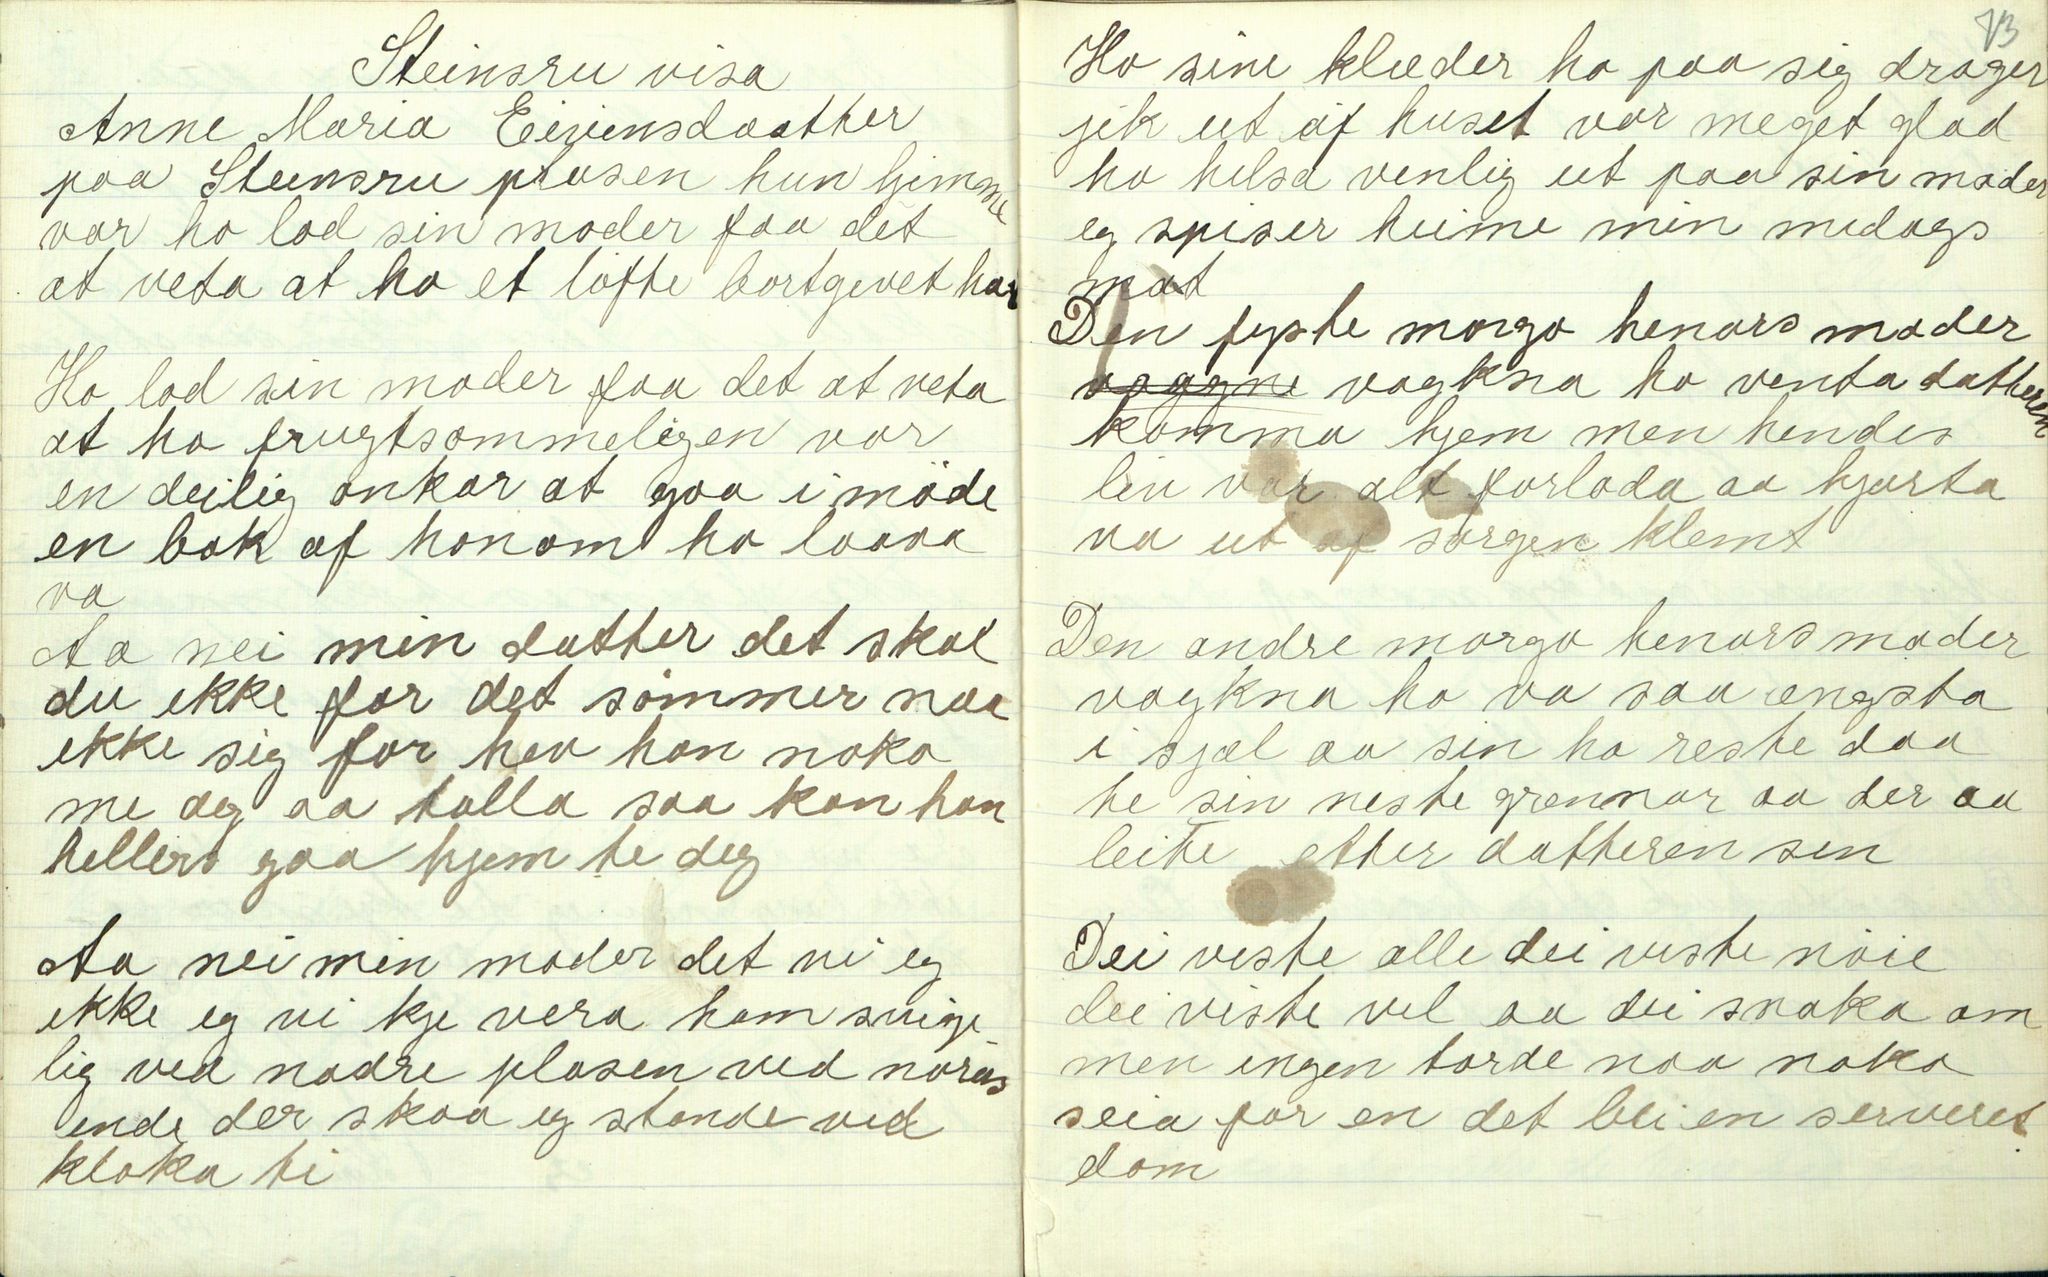 Steinsru visa
Anne Maria Eivensdaather
paa Steensru plasen hun hjemme
var ho lod sin moder faa det
at veta at ho et löfte bortgevet har
Ho lod sin moder faa det at veta
at ho frugtsommeligen var
en deilig onkar at gaa i möde
en bok af honom ho laava
va
Aa nei min datter det skal
du ikke for det sömmer naa
ikke sig for hev han noko
me deg aa talla saa kan han
hellers gaa hjem te deg
Aa nei min moder det vi eg
ikke eg vi kje vera ham svige
lig ved nadre plasen ved noräs
ende der skaa eg stande ved
kloka ti
73
Ho sine klæder ho paa sig drager
jik ut af huset var meget glad
ho helsa venlig ut paa sin moder
eg spiser heime min medags
mat
Den fyste morgo henars moder
vagkna ho venta datheren
komma hjem men hendes
liv var alt forlada aa hjarta
va ut af sorgen klemt
Den andre morgo henars moder
vagkna ho va saa ængsta
i sjæl aa sin ho reste daa
te sin neste grennar aa der aa
leite etter datteren sin
Dei viste alle dei viste nöie
dei viste vel aa dei snaka om
men ingen torde naa noko
seia for en det blei en serveret
dom